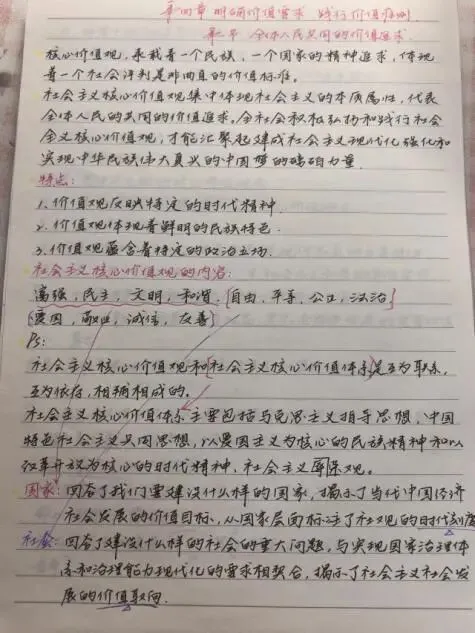 第四章 明确价值要求 践行价值准则
第一节 全体人民共同的价值追求
核心价值观,承载着一个民族,一个国家的精神追求,体现
着一个社会评判是非曲直的价值标准。
社会主义核心价值观集中体现社会主义的本质属性,代表
全体人民的共同的价值追求。全社会积极弘扬和践行社会
主义核心价值观,才能汇聚起建成社会主义现代化强化和
实现中华民族伟大复兴的中国梦的磅礴力量.
特点:
1、价值观反映特定的时代精神.
2、价值观体现着鲜明的民族特色.
3、价值观蕴含着特定的政治立场.
社会主义核心价值观的内容:
富强,民主,文明,和谐.[自由,平等,公正,法治]
[爱国,敬业,诚信,友善]
Ps:
社会主义核心价值观和[社会主义核心价值体系]是互为联系,
互为依存,相辅相成的。
社会主义核心价值体系主要包括马克思主义指导思想,中国
特色社会主义共同思想,以爱国主义为核心的民族精神和以
改革开放为核心的时代精神,社会主义荣辱观。
国家:回答了我们要建设什么样的国家,揭示了当代中国经济
社会发展的价值目标,从国家层面标注了社观的时代刻度
社会:回答了建设什么样的社会的重大问题,与实现国家治理体
系和治理能力现代化的要求相契合,揭示了社会主义社会发
展的价值取向.